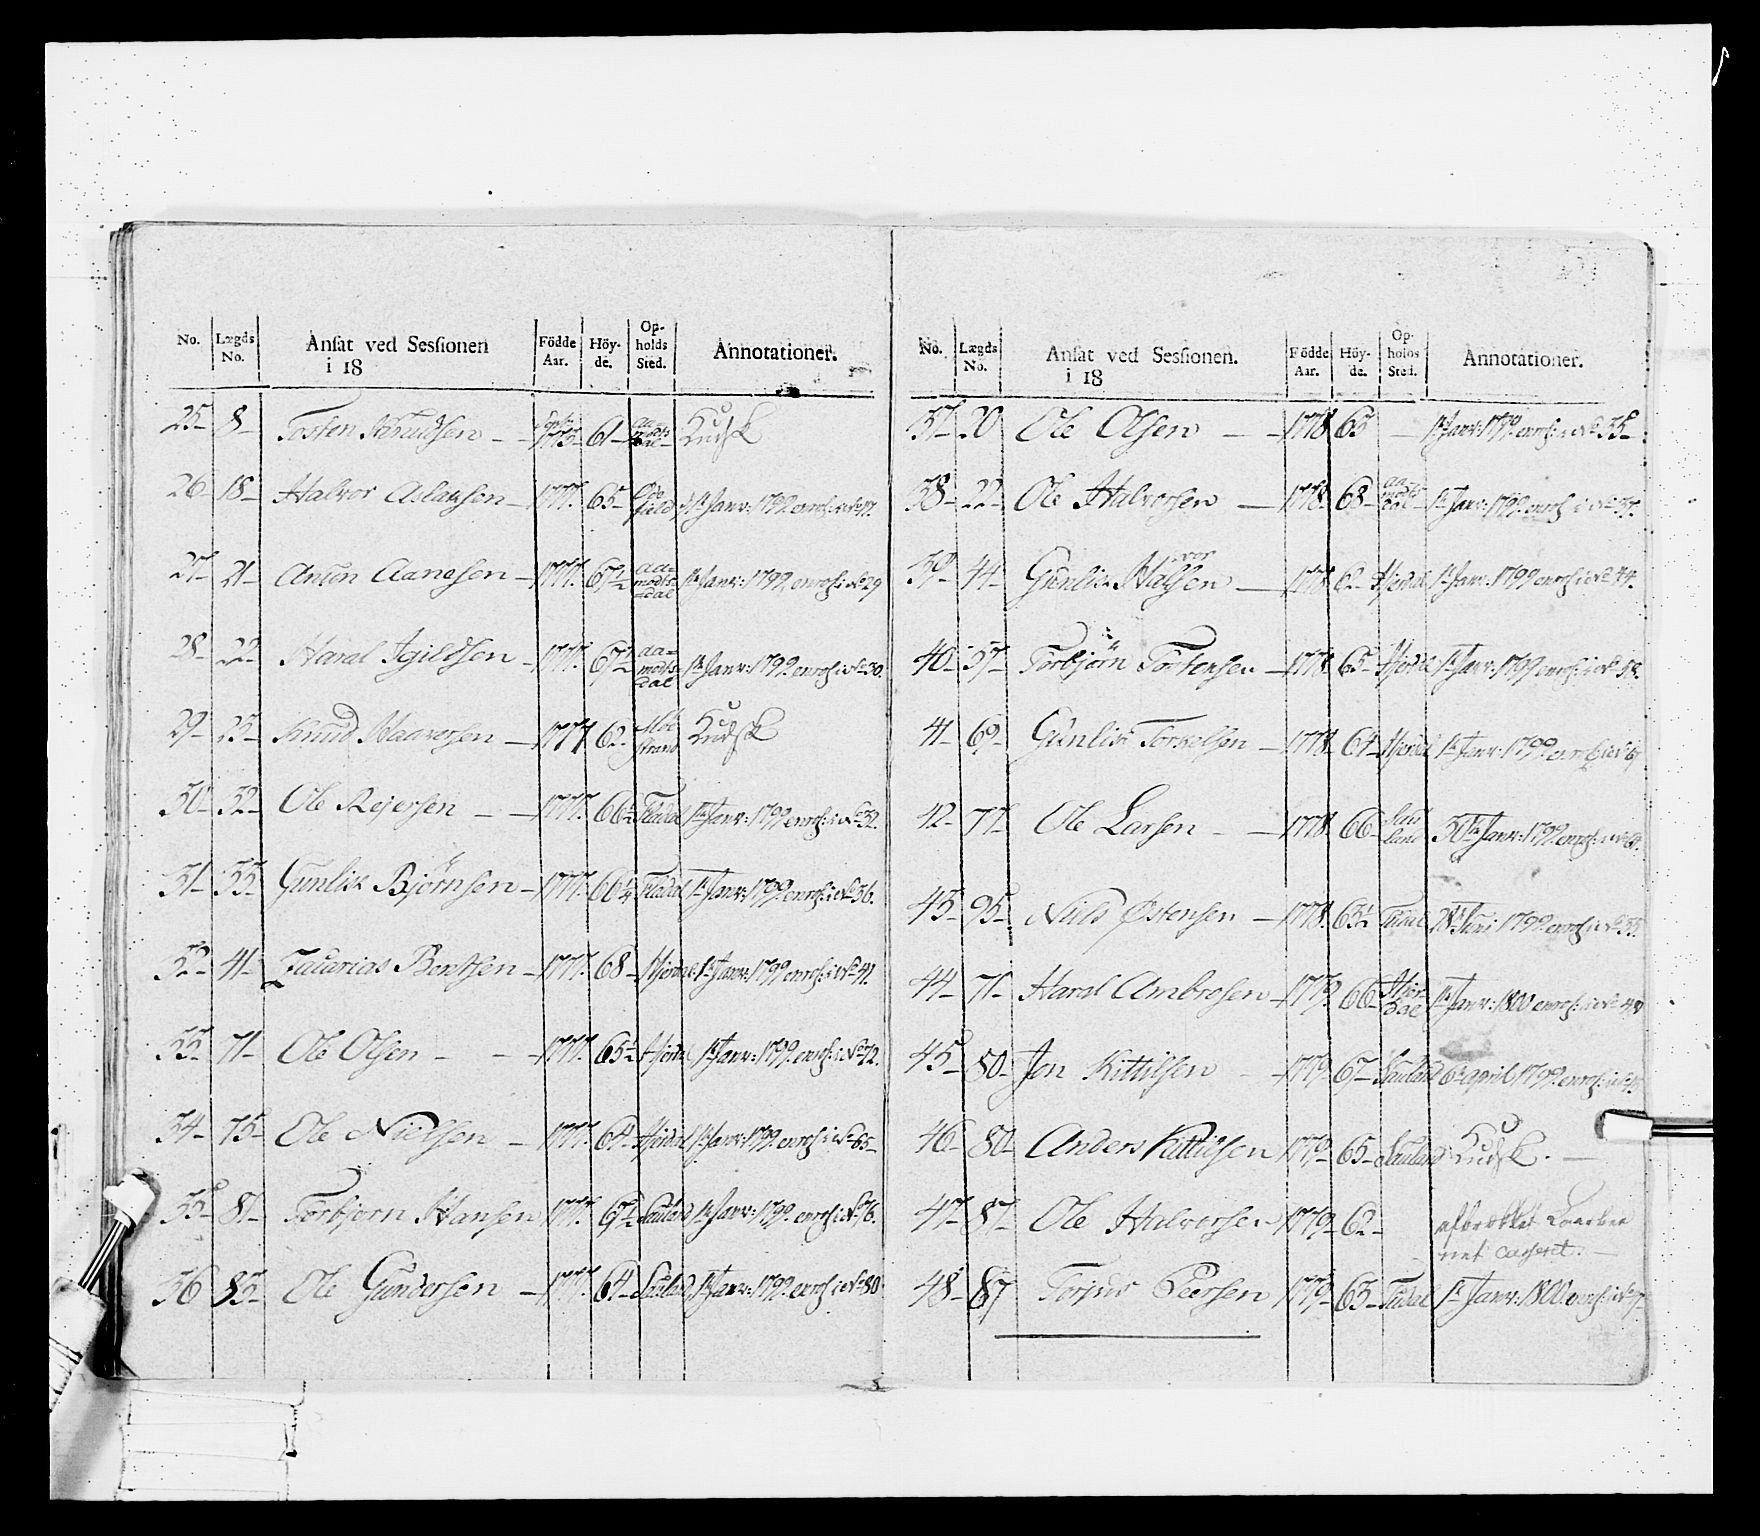 No. Lægds No. Ansat ved Sessionen i 18 Födde Aar. Höy-de. Op-holds Sted. Annotationer.
25 8 Tosten Knudsen 1775 61 Kudsk
26 18 Halvor Aslaksen 1777. 65 1te Janr: 1799 enrol: i No 17.
27 21 Anun Aanesen 1777. 67½ aa=modts=dal 1te Janr: 1799 enrol: i No 29
28 22 Haral Igildsen 1777. 67½ aa=modts=dal 1te Janr: 1799 enrol: i No 30.
29 23 Knud Haavorsen 1777 62 Möe strand Kudsk
30 32 Ole Rejersen 1777. 66½ Fladal 1te Janr: 1799 enrol: i No 32.
31 33 Gunlik Bjørnsen 1777. 66¼ Fladal 1te Janr: 1799 enrol: i No 36.
32 41 Zacarias Bentsen 1777. 68 Hjerdal 1te Janr: 1799 enrol: i No 41.
33 71 Ole Olsen 1777. 65½ Hjerdal 1te Janr: 1799 enrol: i No 72.
34 75 Ole Nielsen 1777. 64 Hjerdal 1te Janr: 1799 enrol: i No 65
35 81 Torbjorn Hansen 1777. 67½ Sauland 1te Janr: 1799 enrol: i No 76.
36 83 Ole Gundersen 1777. 64 Sauland 1te Janr: 1799 enrol: i No 80
No. Lægds No. Ansat ved Sessionen. i 18 Födde Aar. Höy-de. Op holds Sted. Annotationer.
37 20 Ole Olsen 1778 63 1te Janr: 1799 enrol: i No 35
38 22 Ole Halvorsen 1778. 68 aa=modts=dal 1te Janr: 1799 enrol: i No 37.
39 44 Gunlik Halvorsen 1778 62 Hjerdal 1te Janr: 1799 enrol: i No 44.
40 57 Torbjörn Tortensen 1778 65 Hjerdal 1te Janr: 1799 enrol: i No 58.
41 69 Gunlik Torkelsen 1778 64 Hjerdal 1te Janr: 1799 enrol: i No
42 77 Ole Larsen 1778. 66 Sauland Janr: 1799 enrol: i No
43 95 Niels Østensen 1778. 63½ Tudal 28de Juni 1799 enrol: i No 33.
44 71 Haral Ambrosen 1779 66 Hjerdal 1te Janr: 1800 enrol: i No
45 80 Jon Kittilsen 1779 67 Sauland 6te april 1799 enrol: i No
46 80 Anders Kittilsen 1779 65 Sauland Kudsk.
47 87 Ole Halvorsen 1779 62 afbrokket Laarbenet casseret.
48 87 Torjus Peersen 1779 63 Tudal 1te Janr: 1800 enrol: i No